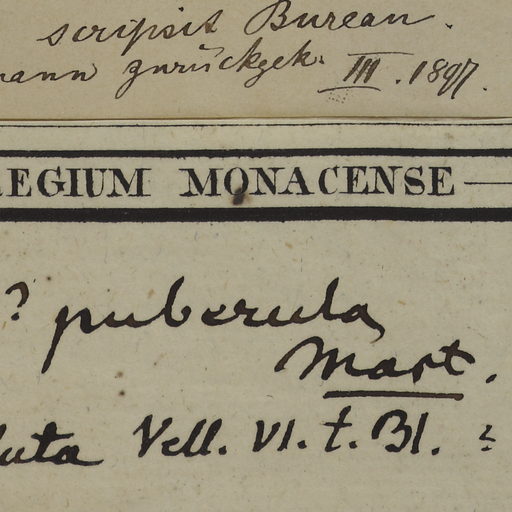 scripsit Bureau.
mann zurückgek. III. 1897.
REGIUM MONACENSE
? puberula
Mart.
luta Vell. VI. t. 31. ?